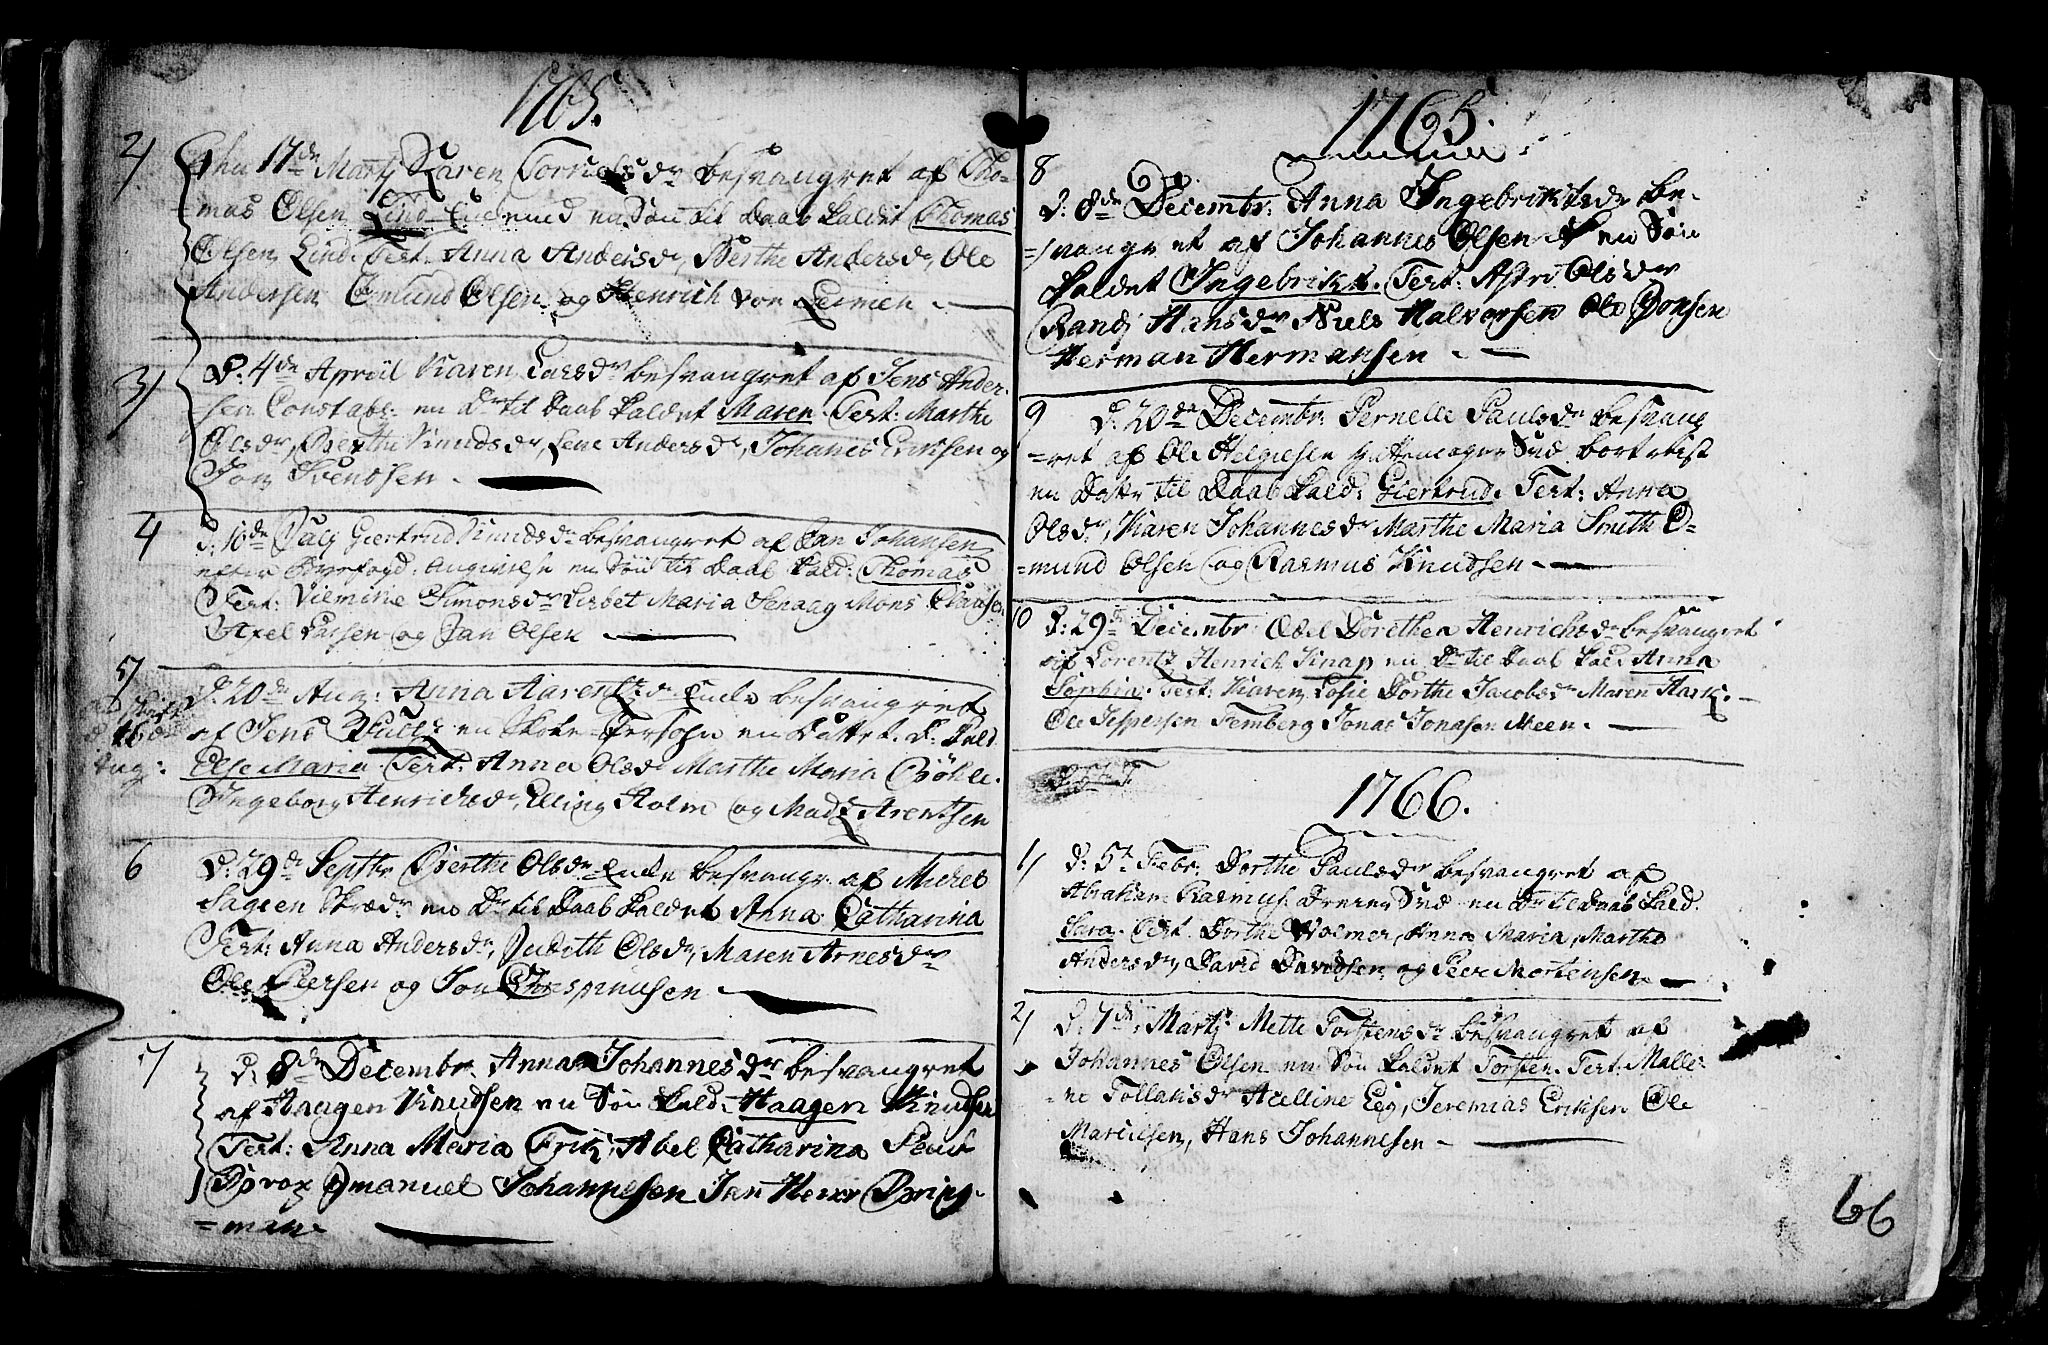 1765.
2) 17de Martj Karen Torrielsdr besvangret af Tho-
=mas Olsen Lind Enemand en Søn til Daab kaldet Thomas
Olsen Lind. Test: Anna Andersdr, Berthe Andersdr, Ole
Andersen Omund Olsen og Henrich von Lermen. —
3) D: 4de April Karen Larsdr besvangret af Jens Ander-
sen Constabr: en Dr til Daab kaldet Maren. Test: Marthe
Olsdr, Berthe Knudsdr, Lene Andersdr, Johanes Eriksen og
Jon Svendsen. —
4 D: 10de Julj Giertrud Knudsdr besvangret af Jan Johansen
efter Angivelse en Søn til Daab kald: Thomas
Test: Vilmine Simonsdr Lisbet Maria Mons Clausen
Axel Larsen og Jan Olsen —
5)
D: 20de Aug: Anna Aarentzdr Enke besvangret
af Jens en Person en Datter. D: kald.
Else Maria. Test: Anna Olsdr Marthe Maria Bøhle.
Ingeborg Henrichsdr, Elling Holm og Madz Arentsen
16de
Aug:
6 D: 29de Septbr Berthe Olsdr Enke besvangr. af Michel
Skrædr en Dr til Daab kaldet Anna Catharina
Test: Anna Andersdr, Judith Olsdr, Maren Arnesdr
Ole Peersen og Jon Espensen —
7) D. 8de Decembr. Anna Johannesdr besvangret
af Haagen Knudsen en Søn kald: Haagen Knudsen
Test: Anna Maria Fritz, Abel Catharina
Emanuel Johannesen Jan Herr Bring-
=man. —
1765.
8
D: 8de Decembr: Anna Ingebriktsdr be-
=svangret af Johannes Olsen en Søn
kaldet Ingebrikt. Test: Astri Olsdr
Randj Hansdr Niels Halvorsen Ole Jonsen
Herman Hermansen. —
9 D: 20de Decembr: Pernelle Paulsdr besvang
=ret af Ole Helgiesen bortreist
en Dattr til Daab kald: Giertrud. Test: Anna
Olsdr, Karen Johannesdr Marthe Maria Smith O-
=mund Olsen og Rasmus Knudsen —
10 D: 29de Decembr Odel Dorethea Henrichsdr besvangret
af Lorentz Henrich Knap en Dr til Daab kald. Anna
Sophia. Test: Karen Losie Dorthe Jacobsdr Maren Hark. —
Ole Jespersen Femberg Jonas Jonasen Meen. —
1766.
1) D: 5te Febr: Dorthe Paulsdr besvangret af
Abraham Rasmus: Svend en Dr til Daab kald.
Sara. Test. Dorthe Wolmer, Anna Maria, Marthe
Andersdr, David Davidsen og Peer Mortensen —
2) D. 7de Martj. Mette Torstensdr besvangret af
Johannes Olsen en Søn kaldet Torsten. Test: Malle-
=ne Tollaksdr Helline Eeg, Jeremias Eriksen Ole
Marcilsen, Hans Johannesen —
66